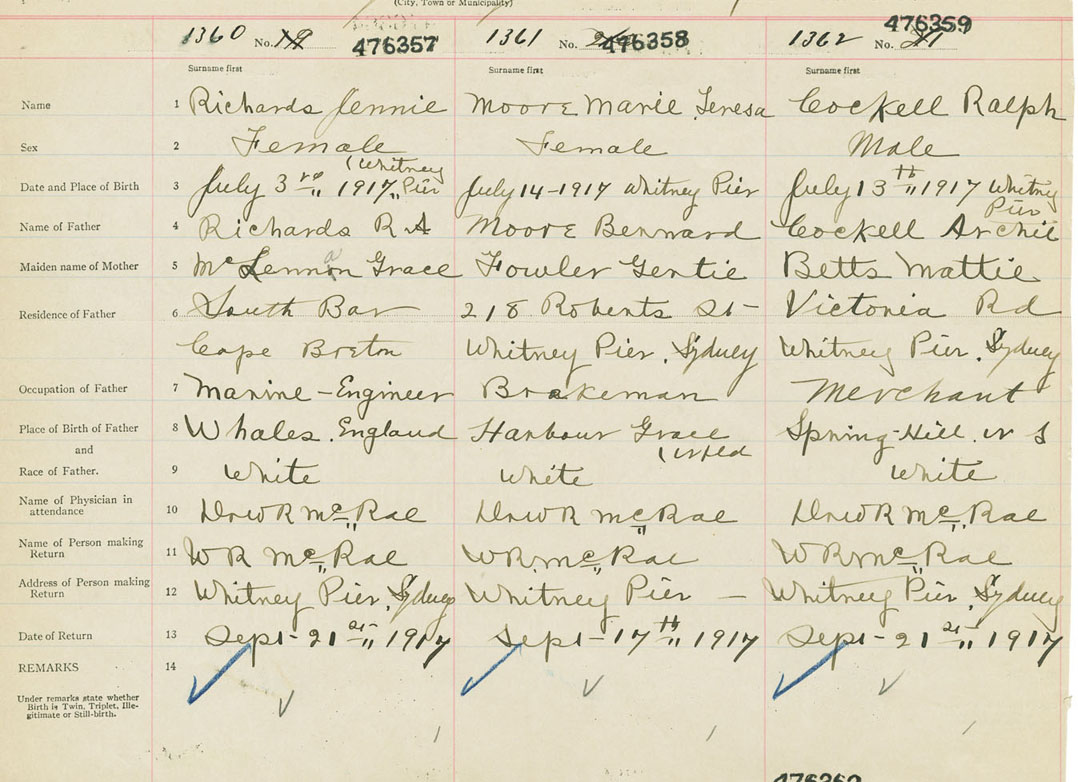 (City, Town or Municipality)
1360 No. 19 476357 1361 No. 476358 1362 No. 21 476359
Surname first Surname first Surname first
Name 1 Richards Jennie Moore Marie Teresa Cockell Ralph
Sex 2 Female Female Male
Date and Place of Birth 3 July 3rd 1917 (Whitney Pier July 14-1917 Whitney Pier July 13th 1917 Whitney Pier
Name of Father 4 Richards R A Moore Bernard Cockell Archie
Maiden name of Mother 5 McLennan Grace Fowler Gertie Betts Mattie
Residence of Father 6 South Bar 218 Roberts St- Victoria Rd
Cape Breton Whitney Pier, Sydney Whitney Pier, Sydney
Occupation of Father 7 Marine-Engineer Brakeman Merchant
Place of Birth of Father 8 Whales, England Harbour Grace (Nfld Spring-Hill. N S
and
Race of Father. 9 White White White
Name of Physician in attendance 10 Dr W R McRae Dr W R McRae Dr W R McRae
Name of Person making Return 11 W R McRae W R McRae W R McRae
Address of Person making Return 12 Whitney Pier, Sydney Whitney Pier — Whitney Pier, Sydney
Date of Return 13 Sept-21st 1917 Sept-17th 1917 Sept-21st 1917
REMARKS 14
Under remarks state whether
Birth is Twin, Triplet, Ille-
gitimate or Still-birth.